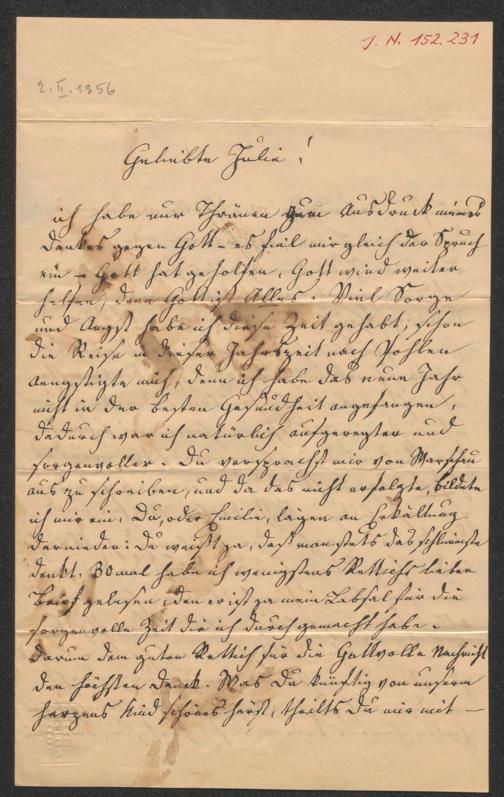 J. N. 152.231
2. II. 1856
Geliebte Julie!
ich habe nur Thränen zum Ausdruck meines
Dankes gegen Gott – es fiel mir gleich der Spruch
ein – Gott hat geholfen, Gott wird weiter
helfen, denn Gott ist Alles. Viel Sorge
und Angst habe ich diese Zeit gehabt, schon
die Reise in dieser Jahrszeit nach Pohlen
aengstigte mich, denn ich habe das neue Jahr
nicht in der besten Gesundheit angefangen,
dadurch war ich natürlich aufgeregter und
sorgenvoller. Du versprachst mir von Warschau
aus zu schreiben, und da das nicht erfolgte, bildete
ich mir ein, Du, oder Emilie, lägen an Erkältung
darnieder: Du weißt ja, daß man stets das schlimmste
denkt. 30 mal habe ich wenigstens Rettichs lieben
Brief gelesen, den er ist ja mein Labsal für die
sorgenvolle Zeit die ich durch gemacht habe.
Darum dem guten Rettich für die Nachricht
den höchsten Dank. Was Du künftig von unserm
herzens Kind schönes hörst, theilst Du mir mit –